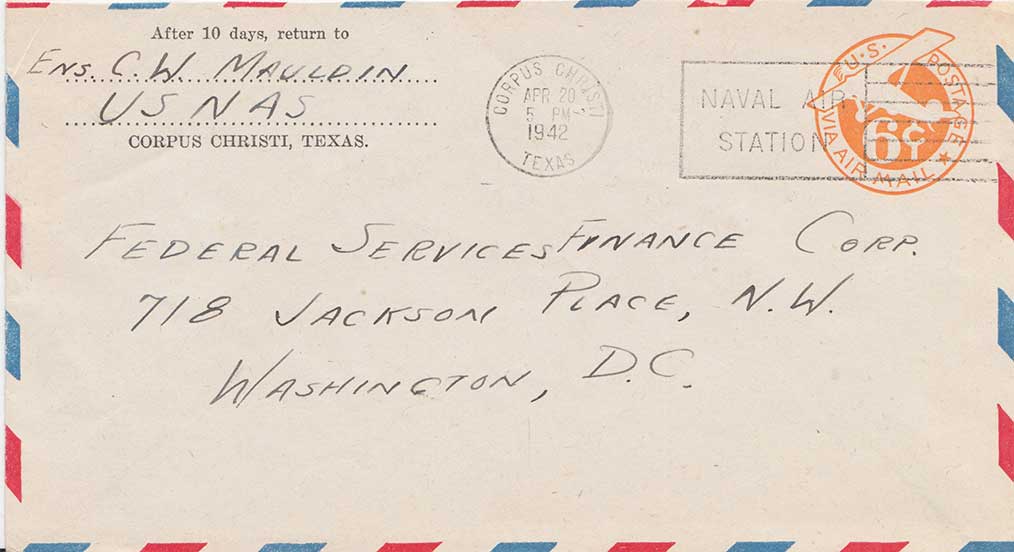 After 10 days, return to
ENS. C. W. MAULDIN
US NAS
CORPUS CHRISTI, TEXAS.
CORPUS CHRISTI,
APR 20
5 PM
1942
TEXAS
NAVAL AIR
STATION
U.S. POSTAGE
6¢
VIA AIR MAIL
FEDERAL SERVICES FINANCE CORP.
718 JACKSON PLACE, N.W.
WASHINGTON, D.C.